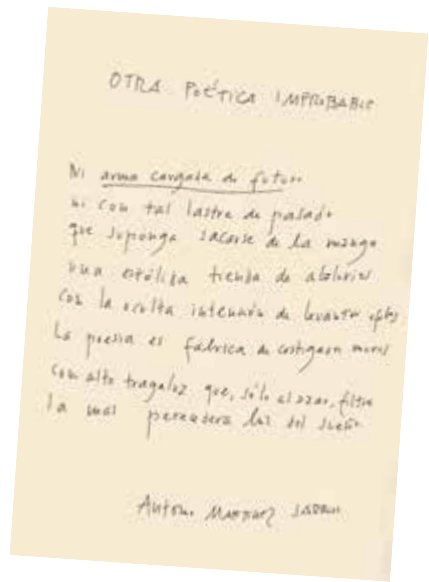 OTRA POÉTICA IMPROBABLE
Ni arma cargada de futuro
ni con tal lastre de pasado
que suponga sacarse de la manga
una tienda de abalorios
con la oculta intención de levantar
La poesía es fábrica de muros
con alto tragaluz que, sólo al azar, filtra
la más perecedera luz del sueño
Antonio Martínez Sarrión